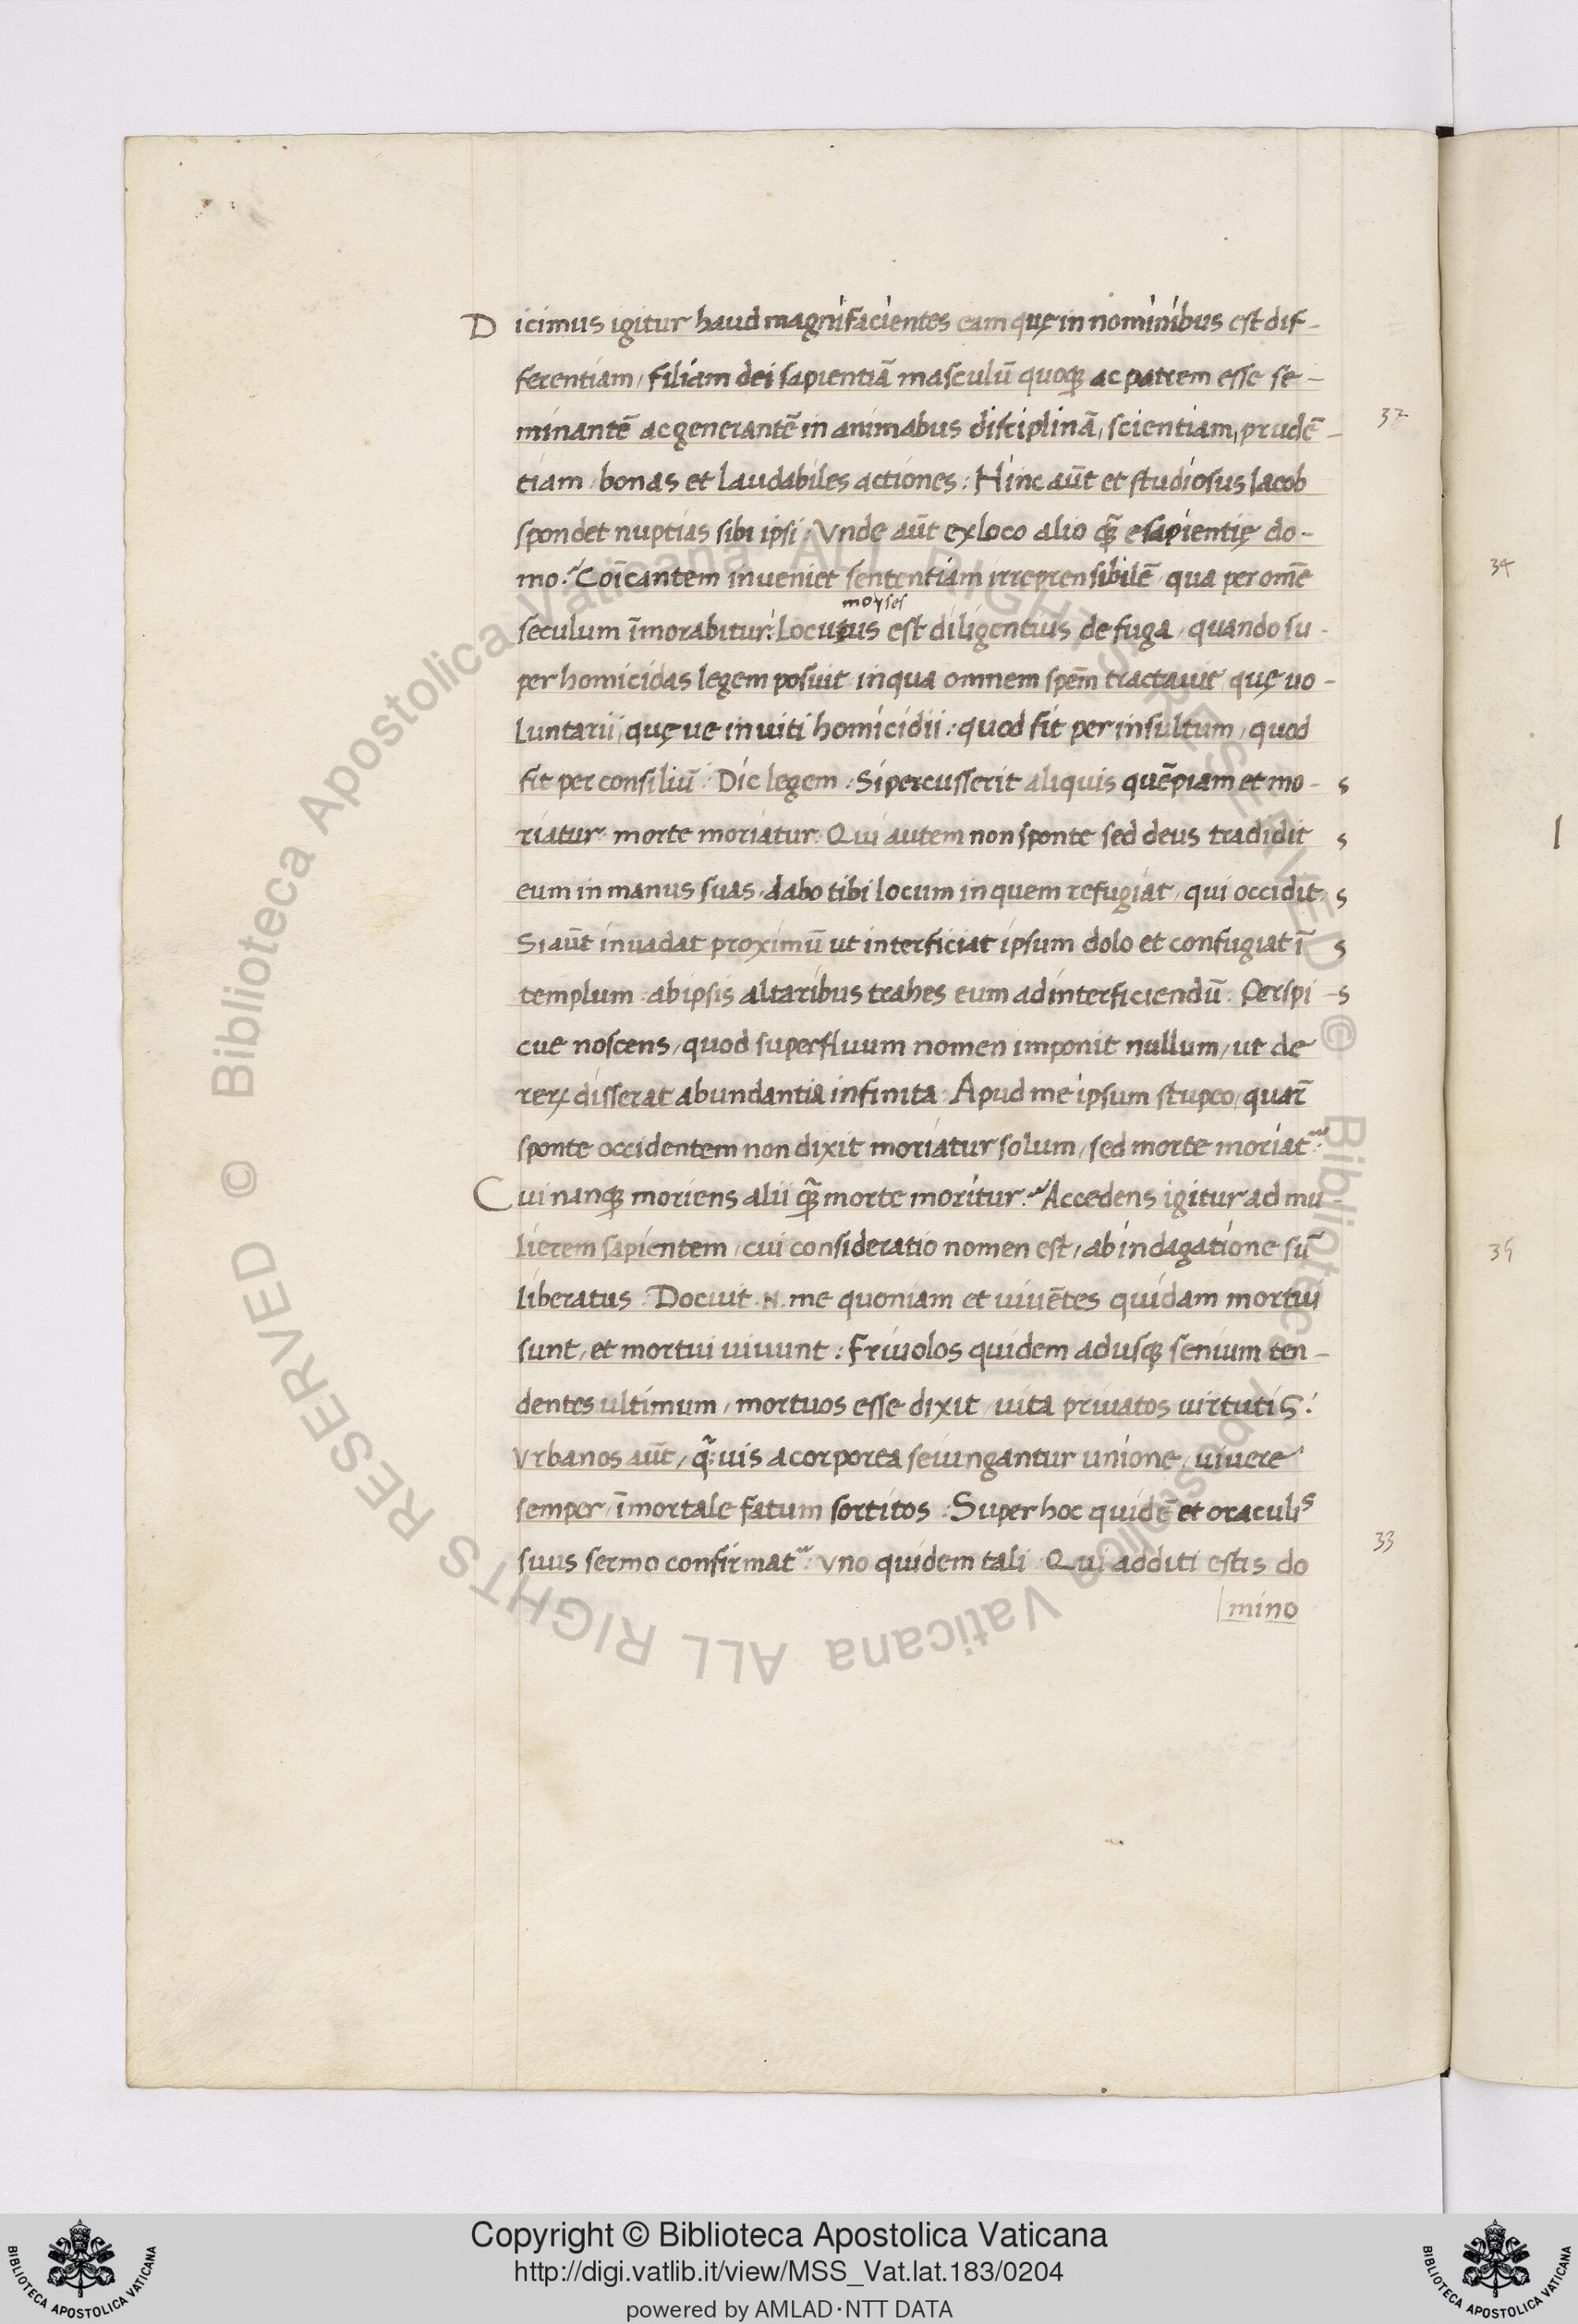 Dicimus igitur haud magnifacientes eam quę in nominibus est dif-
ferentiam, filiam dei sapientiā masculū quoqꝫ ac patrem esse se-
minantē ac generantē in animabus disciplinā, scientiam, prudē-
37
tiam, bonas et laudabiles actiones: Hinc aūt et studiosus Iacob
spondet nuptias sibi ipsi: Vnde aūt ex loco alio qꝫ̄ e sapientię do-
mo? Coīcantem inueniet sententiam irreprensibilē, qua per omē
34
moyses
seculum īmorabitur: Locutus est diligentius de fuga, quando su-
per homicidas legem posuit in qua omnem spēm tractauit, quę uo-
luntarii, quę ue inuiti homicidii: quod fit per insultum, quod
fit per consiliū: Dic legem: Si percusserit aliquis quēpiam et mo- s
riatur morte moriatur. Qui autem non sponte sed deus tradidit s
eum in manus suas, dabo tibi locum in quem refugiat, qui occidit s
Si aūt inuadat proximū ut interficiat ipsum dolo et confugiat ī s
templum: ab ipsis altaribus trahes eum ad interficiendū: Perspi- s
cue noscens, quod superfluum nomen imponit nullum, ut de
rerꝝ disserat abundantia infinita: Apud me ipsum stupeo, quar̄
sponte occidentem non dixit moriatur solum, sed morte moriat᷑:
Cui nanqꝫ moriens alii qꝫ̄ morte moritur? Accedens igitur ad mu-
lierem sapientem, cui consideratio nomen est, ab indagatione sū
35
liberatus: Docuit .N. me quoniam et uiuētes quidam mortui
sunt, et mortui uiuunt: Friuolos quidem adusqꝫ senium ten-
dentes ultimum, mortuos esse dixit, uita priuatos uirtutis:
Vrbanos aūt, qꝫ̄uis a corporea seiungantur unione, uiuere
semper, īmortale fatum sortitos: Super hoc quidē et oraculis
33
suus sermo confirmat᷑: Vno quidem tali: Qui additi estis do
mino
© Biblioteca Apostolica Vaticana ALL RIGHTS RESERVED © Biblioteca Apostolica Vaticana ALL RIGHTS RESERVED
Copyright © Biblioteca Apostolica Vaticana
http://digi.vatlib.it/view/MSS_Vat.lat.183/0204
powered by AMLAD·NTT DATA
BIBLIOTECA APOSTOLICA VATICANA
BIBLIOTECA APOSTOLICA VATICANA